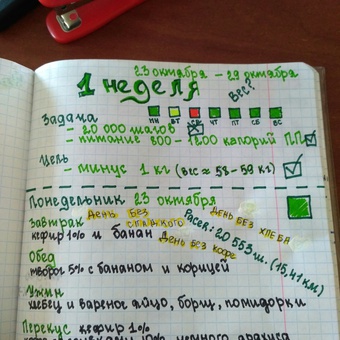 23 октября – 29 октября
1 неделя
Вес?
Задача
ПН ВТ СР ЧТ ПТ СБ ВС
– 20 000 шагов
– питание 800 – 1200 калорий П.П.
Цель
– минус 1 кг (вес ≈ 58 – 59 кг)
Понедельник 23 октября
Завтрак День без сладкого
День без хлеба
кефир 1% и банан День без кофе
Pacer: 20 553 ш. (15,41 км)
Обед
творог 5% с бананом и корицей
Ужин
хлебец и вареное яйцо, борщ, помидорки
Перекус кефир 1%
10% немного арахиса